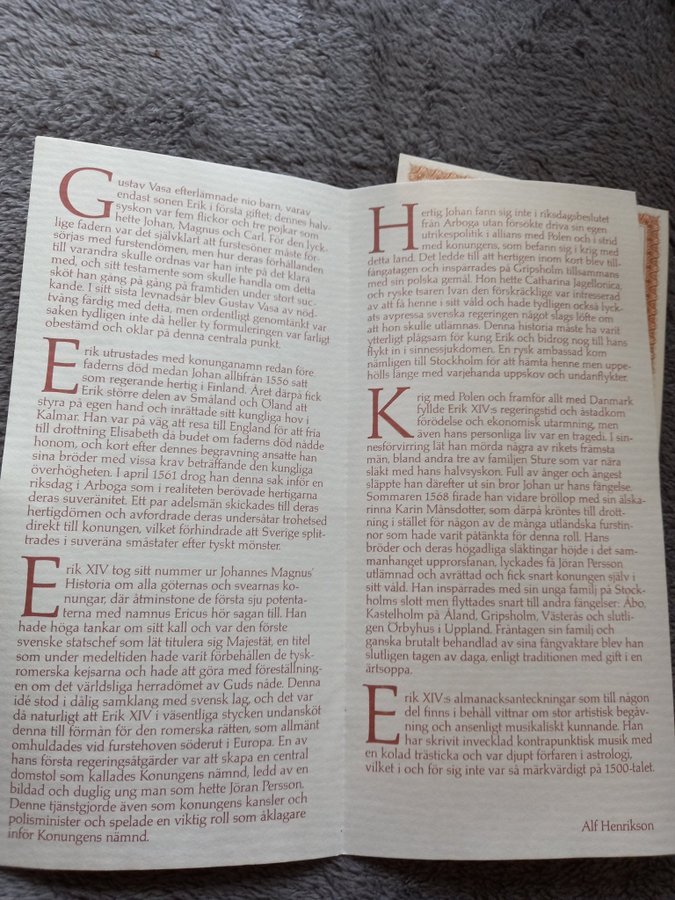 Gustav Vasa efterlämnade nio barn, varav
endast sonen Erik i första giftet; dennes halv-
syskon var fem flickor och tre pojkar som
hette Johan, Magnus och Carl. För den lyck-
lige fadern var det självklart att furstesöner måste för-
sörjas med furstendömen, men hur deras förhållanden
till varandra skulle ordnas var han inte på det klara
med, och sitt testamente som skulle handla om detta
sköt han gång på gång på framtiden under stort suc-
kande. I sitt sista levnadsår blev Gustav Vasa av nöd-
tvång färdig med detta, men ordentligt genomtänkt var
saken tydligen inte då heller ty formuleringen var farligt
obestämd och oklar på denna centrala punkt.
Erik utrustades med konunganamn redan före
faderns död medan Johan alltifrån 1556 satt
som regerande hertig i Finland. Året därpå fick
Erik större delen av Småland och Öland att
styra på egen hand och inrättade sitt kungliga hov i
Kalmar. Han var på väg att resa till England för att fria
till drottning Elisabeth då budet om faderns död nådde
honom, och kort efter dennes begravning ansatte han
sina bröder med vissa krav beträffande den kungliga
överhögheten. I april 1561 drog han denna sak inför en
riksdag i Arboga som i realiteten berövade hertigarna
deras suveränitet. Ett par adelsmän skickades till deras
hertigdömen och avfordrade deras undersåtar trohetsed
direkt till konungen, vilket förhindrade att Sverige split-
trades i suveräna småstater efter tyskt mönster.
Erik XIV tog sitt nummer ur Johannes Magnus'
Historia om alla göternas och svearnas ko-
nungar, där åtminstone de första sju potenta-
terna med namnus Ericus hör sagan till. Han
hade höga tankar om sitt kall och var den förste
svenske statschef som lät titulera sig Majestät, en titel
som under medeltiden hade varit förbehållen de tysk-
romerska kejsarna och hade att göra med föreställning-
en om det världsliga herradömet av Guds nåde. Denna
idé stod i dålig samklang med svensk lag, och det var
då naturligt att Erik XIV i väsentliga stycken undansköt
denna till förmån för den romerska rätten, som allmänt
omhuldades vid furstehoven söderut i Europa. En av
hans första regeringsåtgärder var att skapa en central
domstol som kallades Konungens nämnd, ledd av en
bildad och duglig ung man som hette Jöran Persson.
Denne tjänstgjorde även som konungens kansler och
polisminister och spelade en viktig roll som åklagare
inför Konungens nämnd.
Hertig Johan fann sig inte i riksdagsbeslutet
från Arboga utan försökte driva sin egen
utrikespolitik i allians med Polen och i strid
med konungens, som befann sig i krig med
detta land. Det ledde till att hertigen inom kort blev till-
fångatagen och inspärrades på Gripsholm tillsammans
med sin polska gemål. Hon hette Catharina Jagellonica,
och ryske tsaren Ivan den förskräcklige var intresserad
av att få henne i sitt våld och hade tydligen också lyck-
ats avpressa svenska regeringen något slags löfte om
att hon skulle utlämnas. Denna historia måste ha varit
ytterligt plågsam för kung Erik och bidrog nog till hans
flykt in i sinnessjukdomen. En rysk ambassad kom
nämligen till Stockholm för att hämta henne men uppe-
hölls länge med varjehanda uppskov och undanflykter.
Krig med Polen och framför allt med Danmark
fyllde Erik XIV:s regeringstid och åstadkom
förödelse och ekonomisk utarmning, men
även hans personliga liv var en tragedi. I sin-
nesförvirring lät han mörda några av rikets främsta
män, bland andra tre av familjen Sture som var nära
släkt med hans halvsyskon. Full av ånger och ångest
släppte han därefter ut sin bror Johan ur hans fängelse.
Sommaren 1568 firade han vidare bröllop med sin älska-
rinna Karin Månsdotter, som därpå kröntes till drott-
ning i stället för någon av de många utländska furstin-
nor som hade varit påtänkta för denna roll. Hans
bröder och deras högadliga släktingar höjde i det sam-
manhanget upprorstanan, lyckades få Jöran Persson
utlämnad och avrättad och fick snart konungen själv i
sitt våld. Han inspärrades med sin unga familj på Stock-
holms slott men flyttades snart till andra fängelser: Åbo,
Kastelholm på Åland, Gripsholm, Västerås och slutli-
gen Örbyhus i Uppland. Fråntagen sin familj och
ganska brutalt behandlad av sina fångvaktare blev han
slutligen tagen av daga, enligt traditionen med gift i en
ärtsoppa.
Erik XIV:s almanacksanteckningar som till någon
del finns i behåll vittnar om stor artistisk begåv-
ning och ansenligt musikaliskt kunnande. Han
har skrivit invecklad kontrapunktisk musik med
en kolad trästicka och var djupt förfaren i astrologi,
vilket i och för sig inte var så märkvärdigt på 1500-talet.
Alf Henrikson